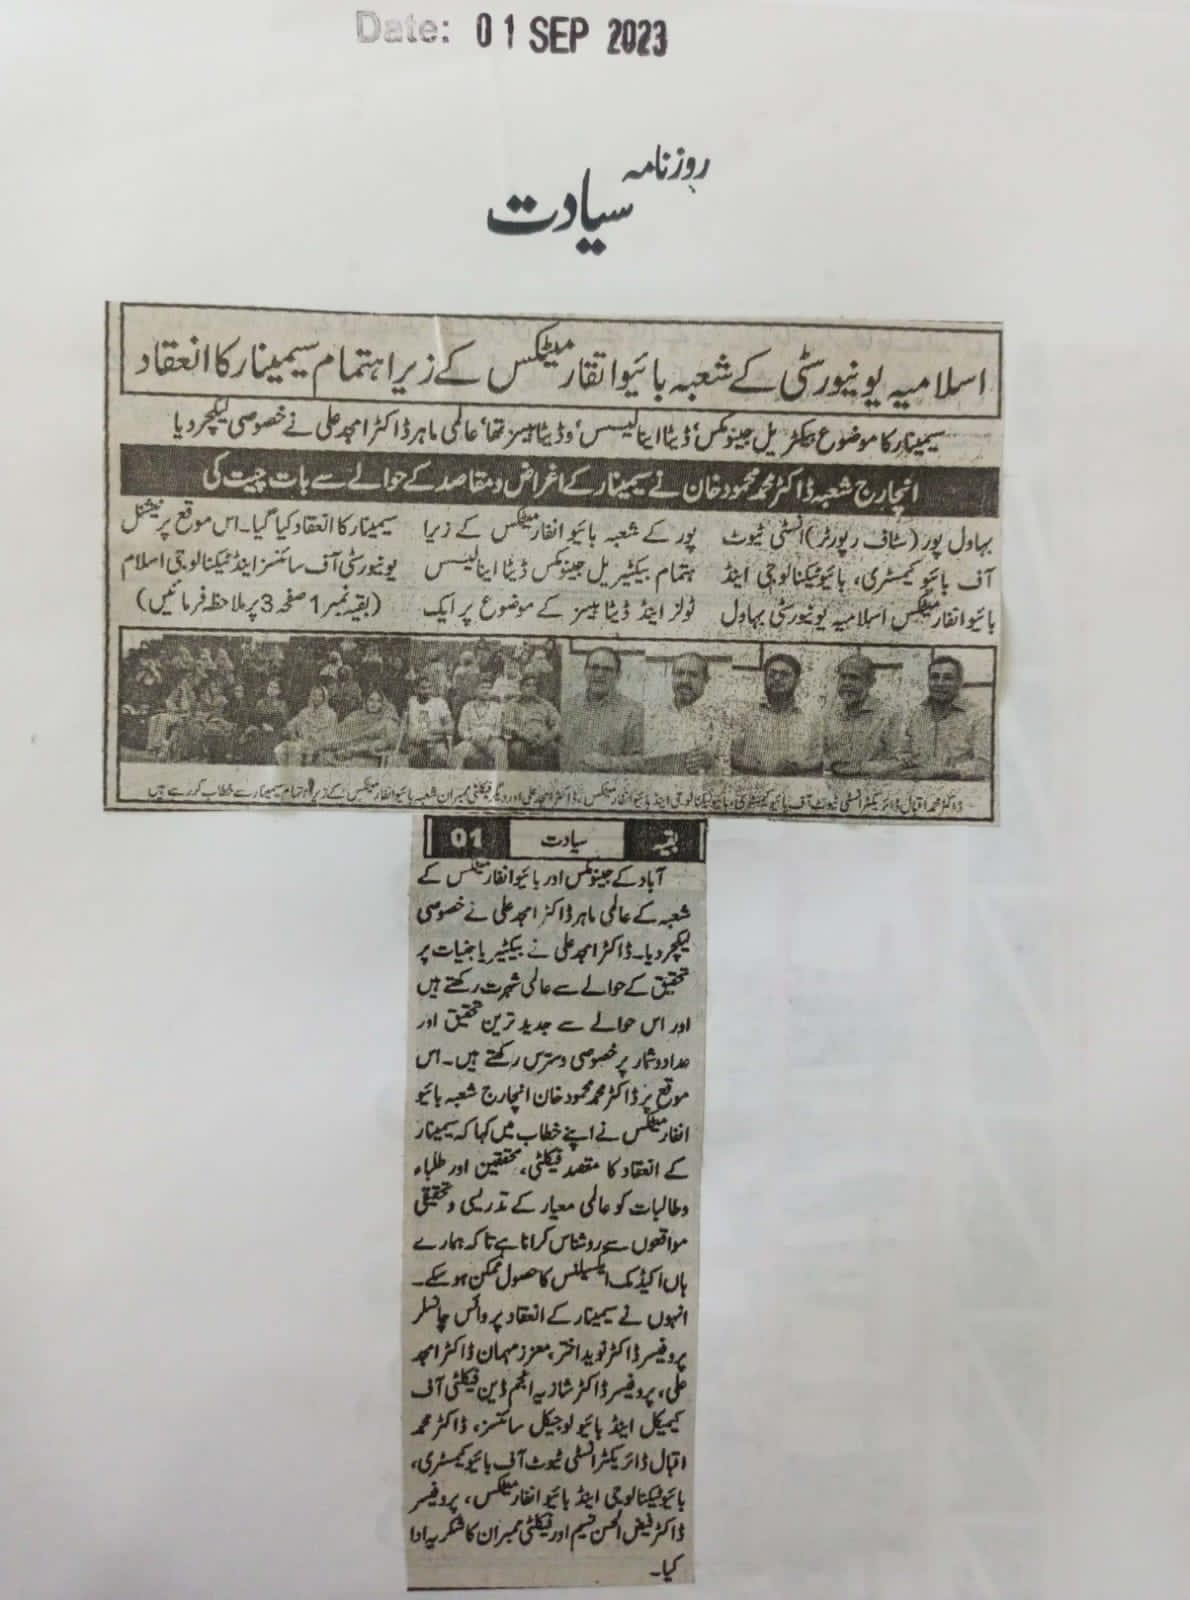 Date: 01 SEP 2023
روزنامہ
سیادت
اسلامیہ یونیورسٹی کے شعبہ بائیوانفارمیٹکس کے زیر اہتمام سیمینار کا انعقاد
سیمینار کا موضوع بیکٹریل جینومکس‘ ڈیٹا اینالیسس‘ وڈیٹا بیسز تھا‘ عالمی ماہر ڈاکٹر امجد علی نے خصوصی لیکچر دیا
انچارج شعبہ ڈاکٹر محمد محمود خان نے سیمینار کے اغراض و مقاصد کے حوالے سے بات چیت کی
بہاول پور (سٹاف رپورٹر) انسٹی ٹیوٹ
آف بائیو کیمسٹری، بائیوٹیکنالوجی اینڈ
بائیوانفارمیٹکس اسلامیہ یونیورسٹی بہاول
پور کے شعبہ بائیو انفارمیٹکس کے زیرا
ہتمام بیکٹیریل جینومکس ڈیٹا اینالیسس
ٹولز اینڈ ڈیٹا بیسز کے موضوع پر ایک
سیمینار کا انعقاد کیا گیا۔ اس موقع پر نیشنل
یونیورسٹی آف سائنسز اینڈ ٹیکنالوجی اسلام
(بقیہ نمبر 1 صفحہ 3 پر ملاحظہ فرمائیں)
ڈاکٹر محمد اقبال ڈائریکٹر انسٹی ٹیوٹ آف بائیو کیمسٹری، بائیوٹیکنالوجی اینڈ بائیوانفارمیٹکس، ڈاکٹر امجد علی اور دیگر فیکلٹی ممبران شعبہ بائیوانفارمیٹکس کے زیر اہتمام سیمینار سے خطاب کر رہے ہیں
بقیہ سیادت 01
آباد کے جینومکس اور بائیوانفارمیٹکس کے
شعبہ کے عالمی ماہر ڈاکٹر امجد علی نے خصوصی
لیکچر دیا۔ ڈاکٹر امجد علی نے بیکٹیریا جنیات پر
تحقیق کے حوالے سے عالمی شہرت رکھتے ہیں
اور اس حوالے سے جدید ترین تحقیق اور
عدادوشمار پر خصوصی دسترس رکھتے ہیں۔ اس
موقع پر ڈاکٹر محمد محمود خان انچارج شعبہ بائیو
انفارمیٹکس نے اپنے خطاب میں کہا کہ سیمینار
کے انعقاد کا مقصد فیکلٹی، محققین اور طلباء
وطالبات کو عالمی معیار کے تدریسی و تحقیقی
مواقعوں سے روشناس کرانا ہے تاکہ ہمارے
ہاں اکیڈمک ایکسیلنس کا حصول ممکن ہو سکے۔
انہوں نے سیمینار کے انعقاد پر وائس چانسلر
پروفیسر ڈاکٹر نوید اختر، معزز مہمان ڈاکٹر امجد
علی، پروفیسر ڈاکٹر شازیہ انجم ڈین فیکلٹی آف
کیمیکل اینڈ بائیولوجیکل سائنسز، ڈاکٹر محمد
اقبال ڈائریکٹر انسٹی ٹیوٹ آف بائیو کیمسٹری،
بائیوٹیکنالوجی اینڈ بائیوانفارمیٹکس، پروفیسر
ڈاکٹر فیض الحسن نسیم اور فیکلٹی ممبران کا شکریہ ادا
کیا۔